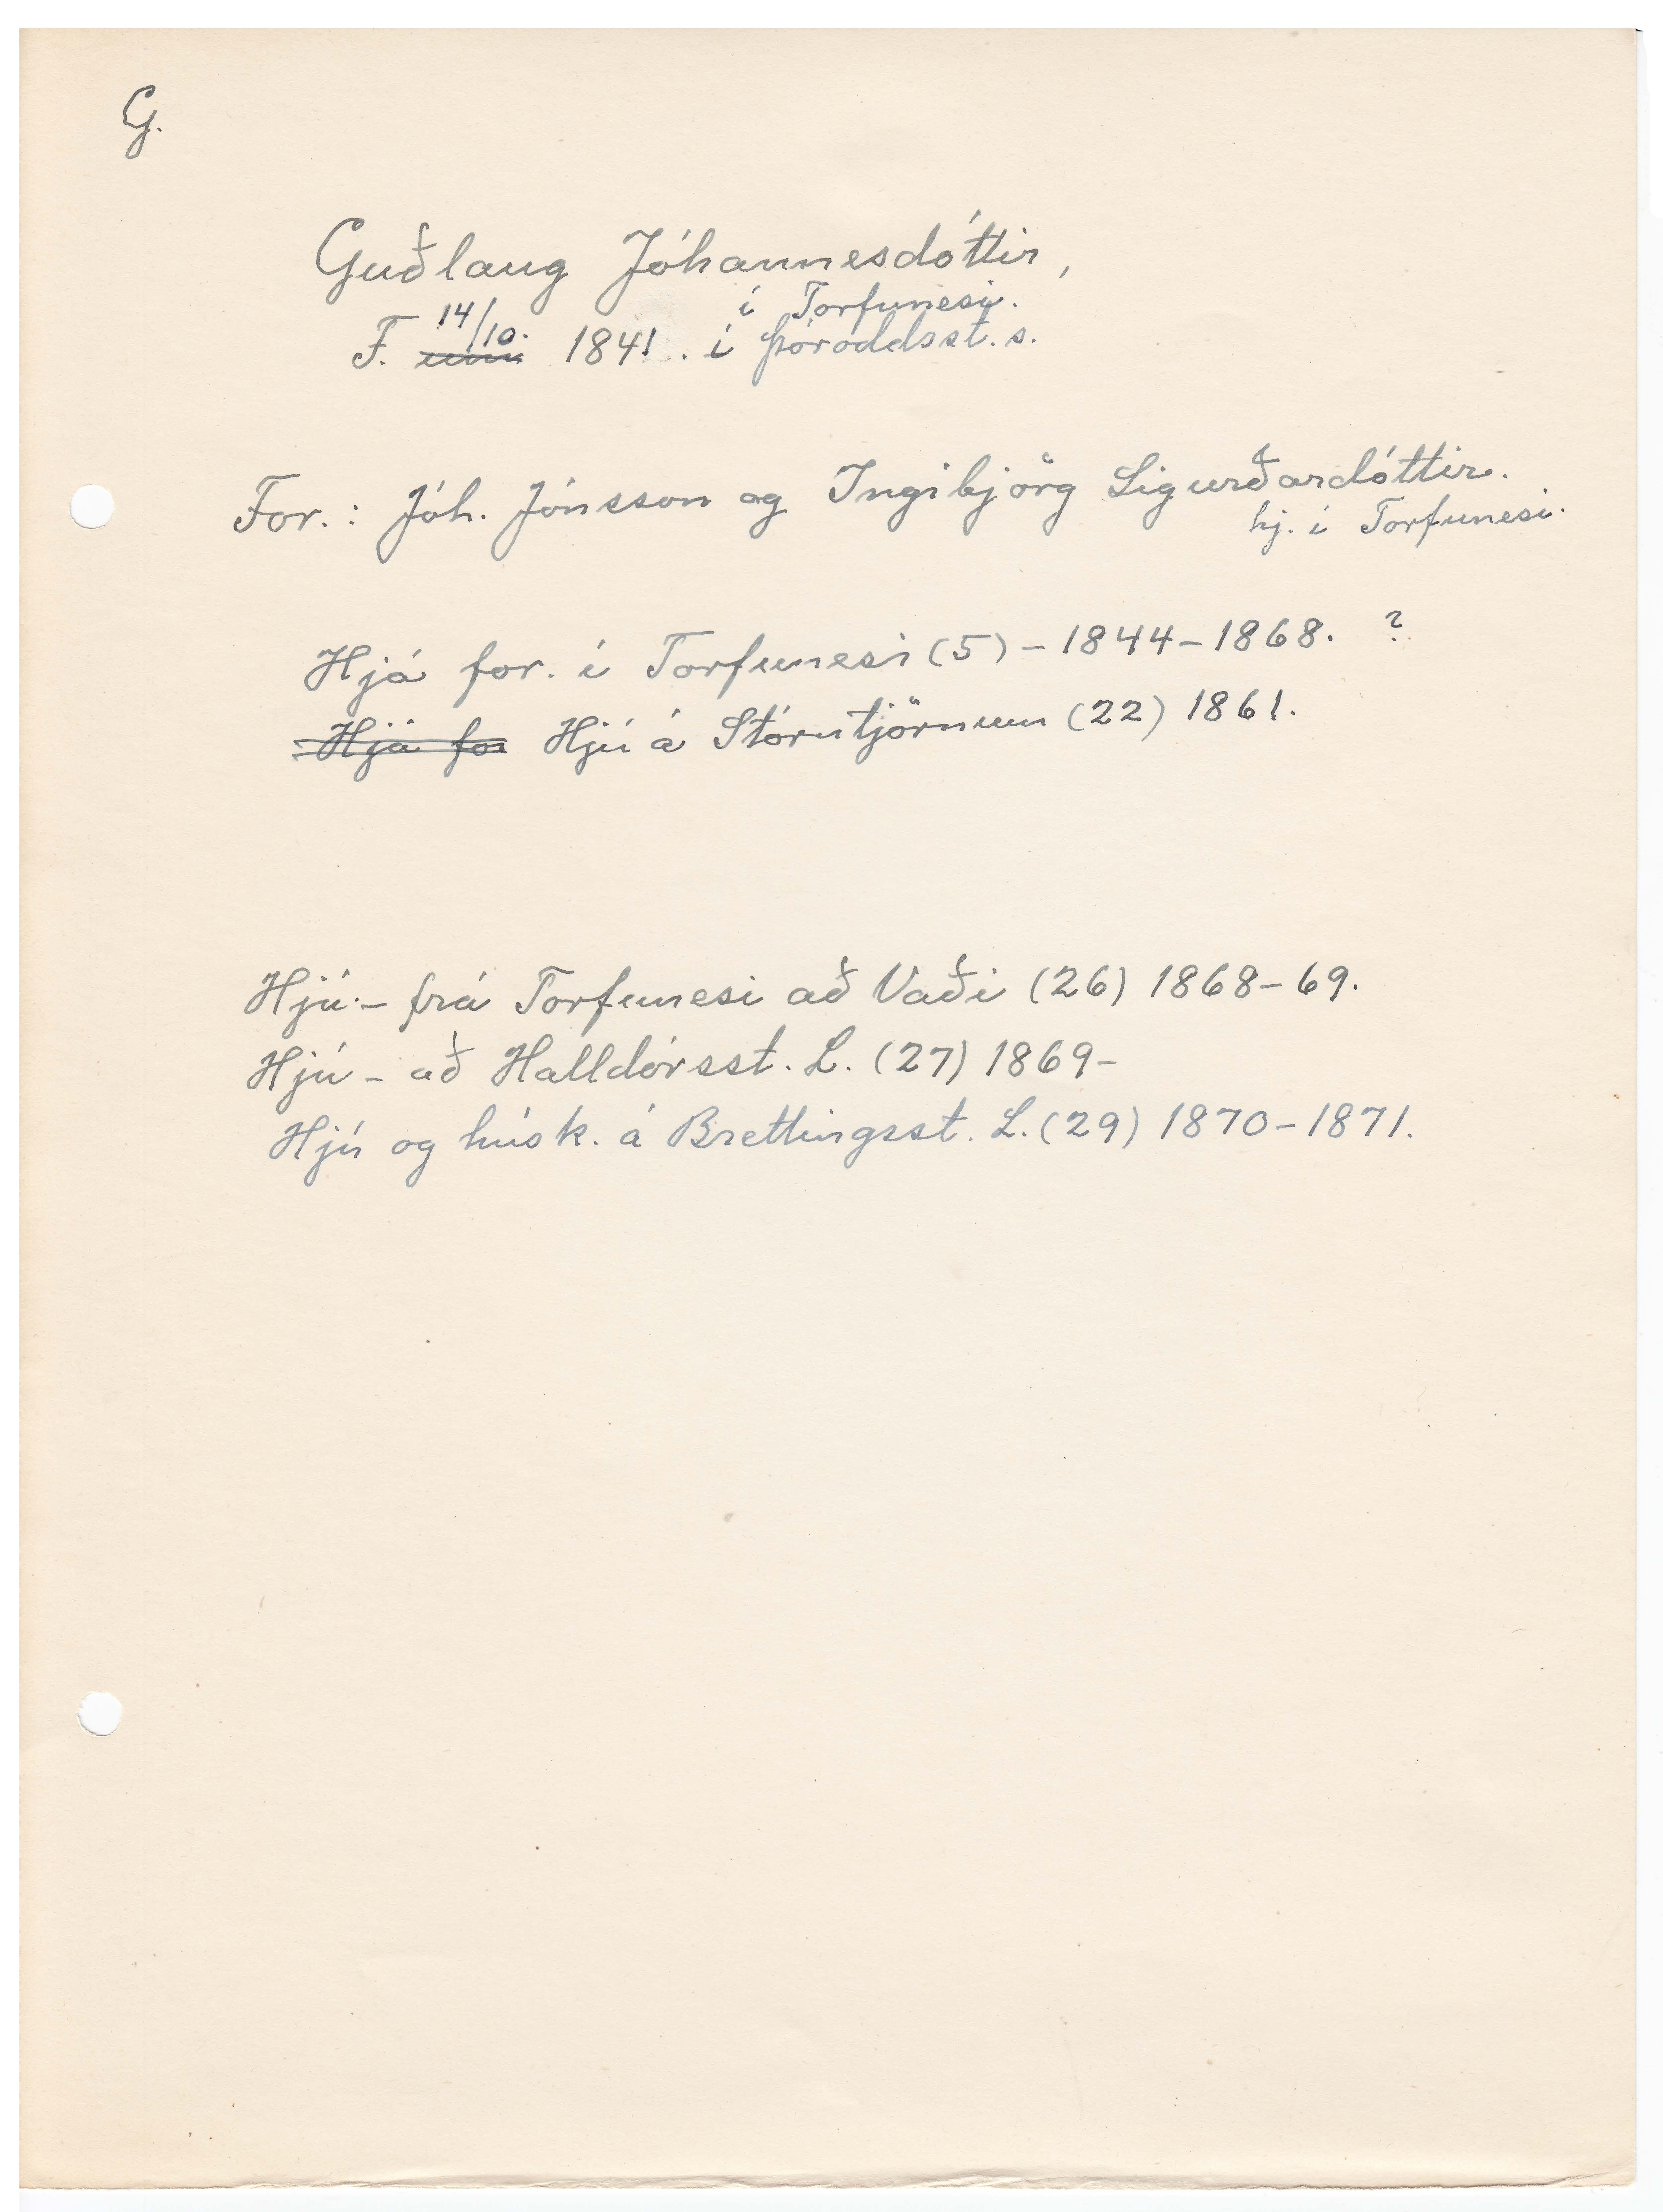 G.
Guðlaug Jóhannesdóttir,
í Torfunesi.
F. 14/10. 1841. í Þóroddsst. s.
For.: Jóh. Jónsson og Ingibjörg Sigurðardóttir.
hj. í Torfunesi.
Hjá for. í Torfunesi (5) - 1844-1868. ?
Hjá for Hjú á Stórutjörnum (22) 1861.
Hjú - frá Torfunesi að Vaði (26) 1868-69.
Hjú - að Halldórsst. L. (27) 1869-
Hjú og húsk. á Brettingsst. L. (29) 1870-1871.